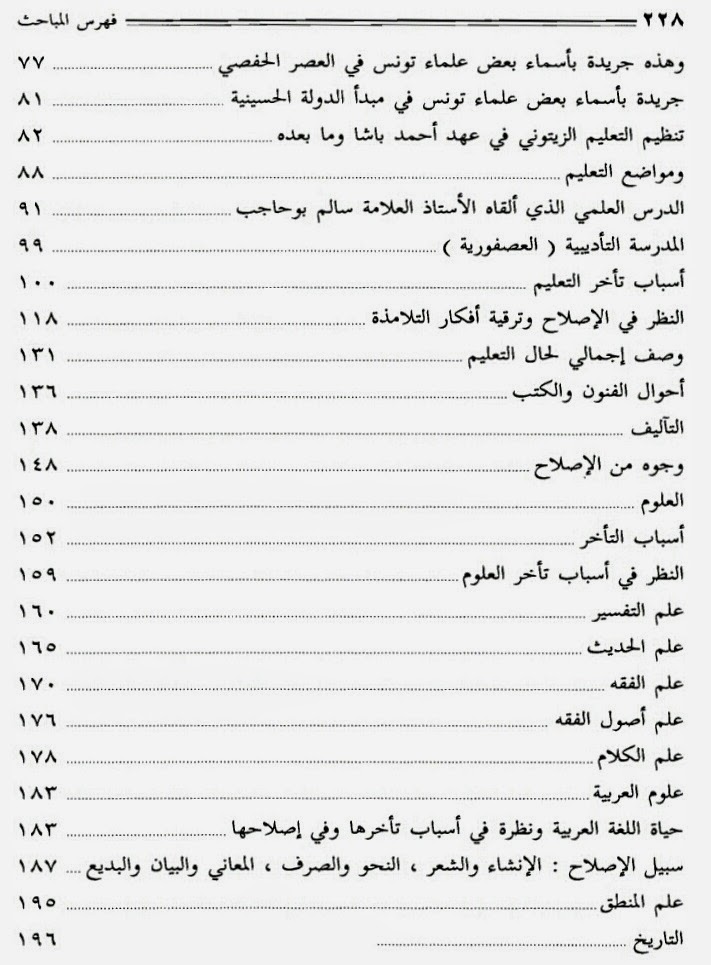 ٢٢٨ فهرس المباحث
وهذه جريدة بأسماء بعض علماء تونس في العصر الحفصي ٧٧
جريدة بأسماء بعض علماء تونس في مبدأ الدولة الحسينية ٨١
تنظيم التعليم الزيتوني في عهد أحمد باشا وما بعده ٨٢
ومواضع التعليم ٨٨
الدرس العلمي الذي ألقاه الأستاذ العلامة سالم بوحاجب ٩١
المدرسة التأديبية ( العصفورية ) ٩٩
أسباب تأخر التعليم ١٠٠
النظر في الإصلاح وترقية أفكار التلامذة ١١٨
وصف إجمالي لحال التعليم ١٣١
أحوال الفنون والكتب ١٣٦
التآليف ١٣٨
وجوه من الإصلاح ١٤٨
العلوم ١٥٠
أسباب التأخر ١٥٢
النظر في أسباب تأخر العلوم ١٥٩
علم التفسير ١٦٠
علم الحديث ١٦٥
علم الفقه ١٧٠
علم أصول الفقه ١٧٦
علم الكلام ١٧٨
علوم العربية ١٨٣
حياة اللغة العربية ونظرة في أسباب تأخرها وفي إصلاحها ١٨٣
سبيل الإصلاح : الإنشاء والشعر ، النحو والصرف ، المعاني والبيان والبديع ١٨٧
علم المنطق ١٩٥
التاريخ ١٩٦